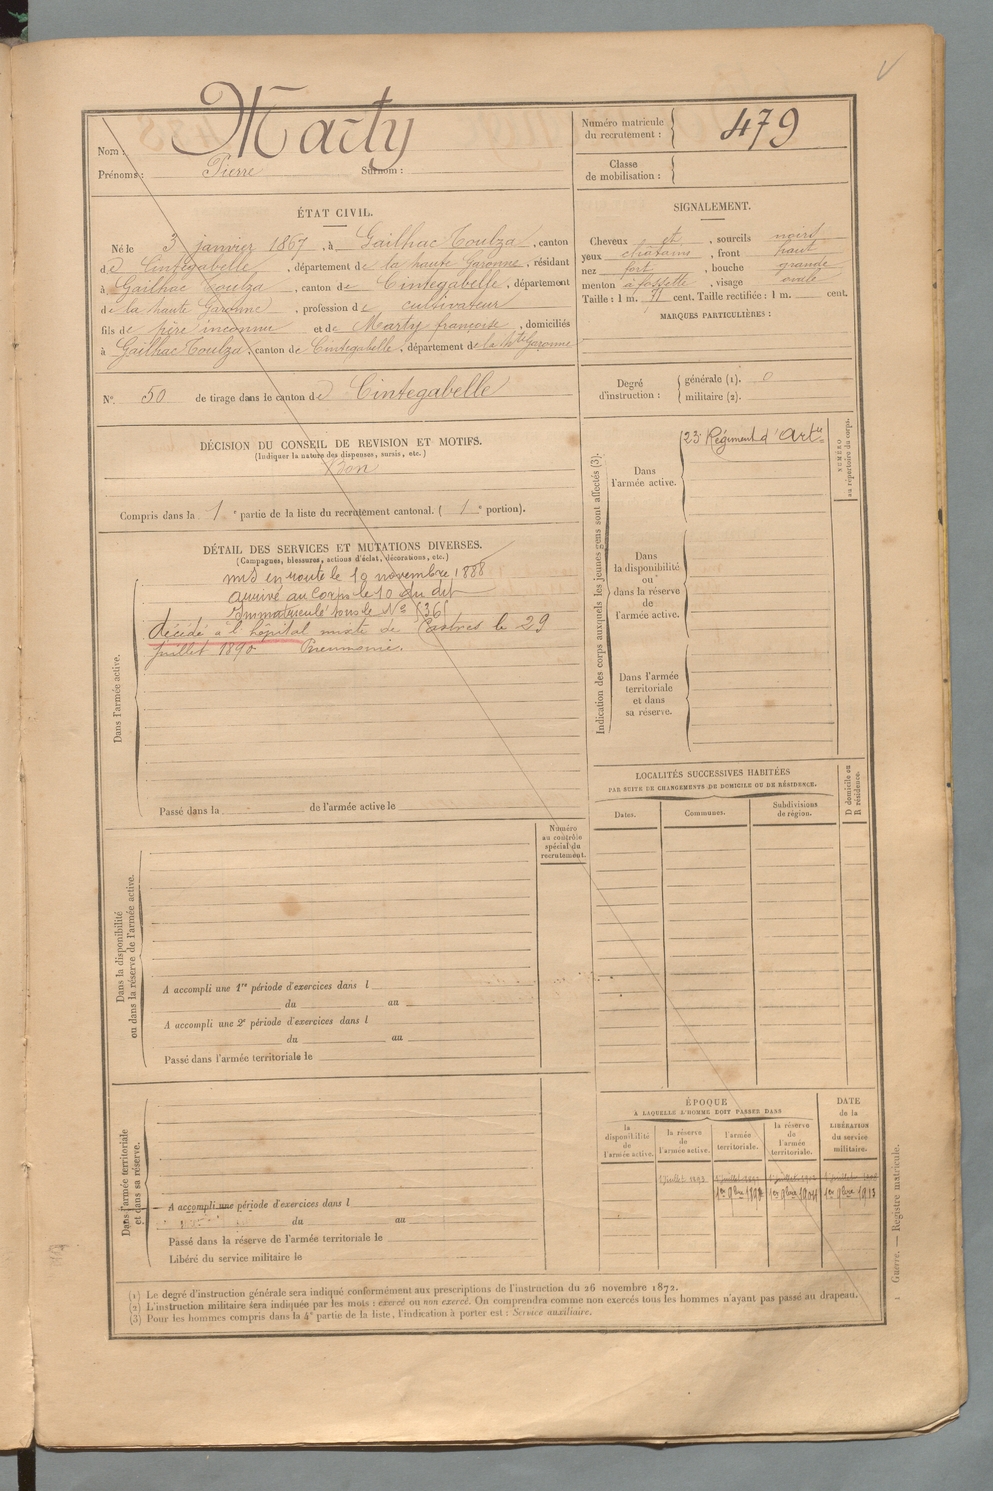 Nom : Marty
Prénoms : Pierre Surnom :
Numéro matricule du recrutement : 479
Classe de mobilisation :
ÉTAT CIVIL.
Né le 3 janvier 1867, à Gailhac Toulza, canton
d d Cintegabelle, département de la haute Garonne, résidant
à Gailhac Toulza, canton de Cintegabelle, département
de la haute Garonne, profession de cultivateur
fils de père inconnu et de Marty françoise, domiciliés
à Gailhac Toulza, canton de Cintegabelle, département de la hte Garonne
N° 50 de tirage dans le canton de Cintegabelle
SIGNALEMENT.
Cheveux et, sourcils noirs
yeux chatains, front haut
nez fort, bouche grande
menton à fossette, visage ovale
Taille : 1 m. cent. Taille rectifiée : 1 m. cent.
MARQUES PARTICULIÈRES :
Degré d'instruction : générale (1). 0
militaire (2).
DÉCISION DU CONSEIL DE REVISION ET MOTIFS.
(Indiquer la nature des dispenses, sursis, etc.)
Bon
Compris dans la 1e partie de la liste du recrutement cantonal. ( 1e portion).
DÉTAIL DES SERVICES ET MUTATIONS DIVERSES.
(Campagnes, blessures, actions d'éclat, décorations, etc.)
Dans l'armée active.
mis en route le 10 novembre 1888
arrivé au corps le 10 du dit
Immatriculé sous le N°
décédé à l'hôpital mixte de Castres le 29
juillet 1890 Pneumonie.
Passé dans la de l'armée active le
Indication des corps auxquels les jeunes gens sont affectés (3).
Dans l'armée active.
23e Régiment d'Artie
NUMÉRO au répertoire du corps.
Dans la disponibilité ou dans la réserve de l'armée active.
Dans l'armée territoriale et dans sa réserve.
LOCALITÉS SUCCESSIVES HABITÉES
PAR SUITE DE CHANGEMENTS DE DOMICILE OU DE RÉSIDENCE.
Dates. Communes. Subdivisions de région. D domicile ou R résidence.
Numéro au contrôle spécial du recrutement.
Dans la disponibilité ou dans la réserve de l'armée active.
A accompli une 1re période d'exercices dans l
du au
A accompli une 2e période d'exercices dans l
du au
Passé dans l'armée territoriale le
Dans l'armée territoriale et dans sa réserve.
A accompli une période d'exercices dans l
du au
Passé dans la réserve de l'armée territoriale le
Libéré du service militaire le
ÉPOQUE
A LAQUELLE L'HOMME DOIT PASSER DANS
la disponibilité de l'armée active.
la réserve de l'armée active.
l'armée territoriale.
la réserve de l'armée territoriale.
DATE de la LIBÉRATION du service militaire.
1 juillet 1893
1er 9bre 1913
(1) Le degré d'instruction générale sera indiqué conformément aux prescriptions de l'instruction du 26 novembre 1872.
(2) L'instruction militaire sera indiquée par les mots : exercé ou non exercé. On comprendra comme non exercés tous les hommes n'ayant pas passé au drapeau.
(3) Pour les hommes compris dans la 4e partie de la liste, l'indication à porter est : Service auxiliaire.
1 Guerre. — Registre matricule.